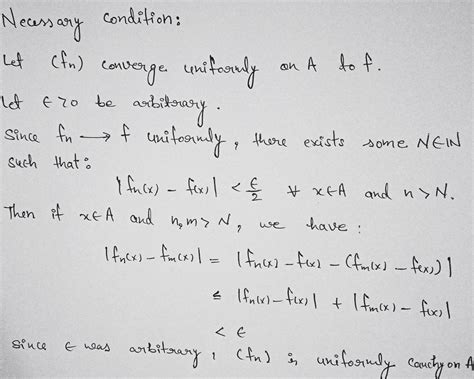 Necessary condition:
Let (fn) converge uniformly on A to f.
Let ε>0 be arbitrary.
Since fn → f uniformly, there exists some N∈ℕ
such that:
|fn(x) − f(x)| < ε/2 ∀ x∈A and n>N.
Then if x∈A and n,m>N, we have:
|fn(x) − fm(x)| = |fn(x) − f(x) − (fm(x) − f(x))|
≤ |fn(x) − f(x)| + |fm(x) − f(x)|
< ε
Since ε was arbitrary, (fn) is uniformly cauchy on A